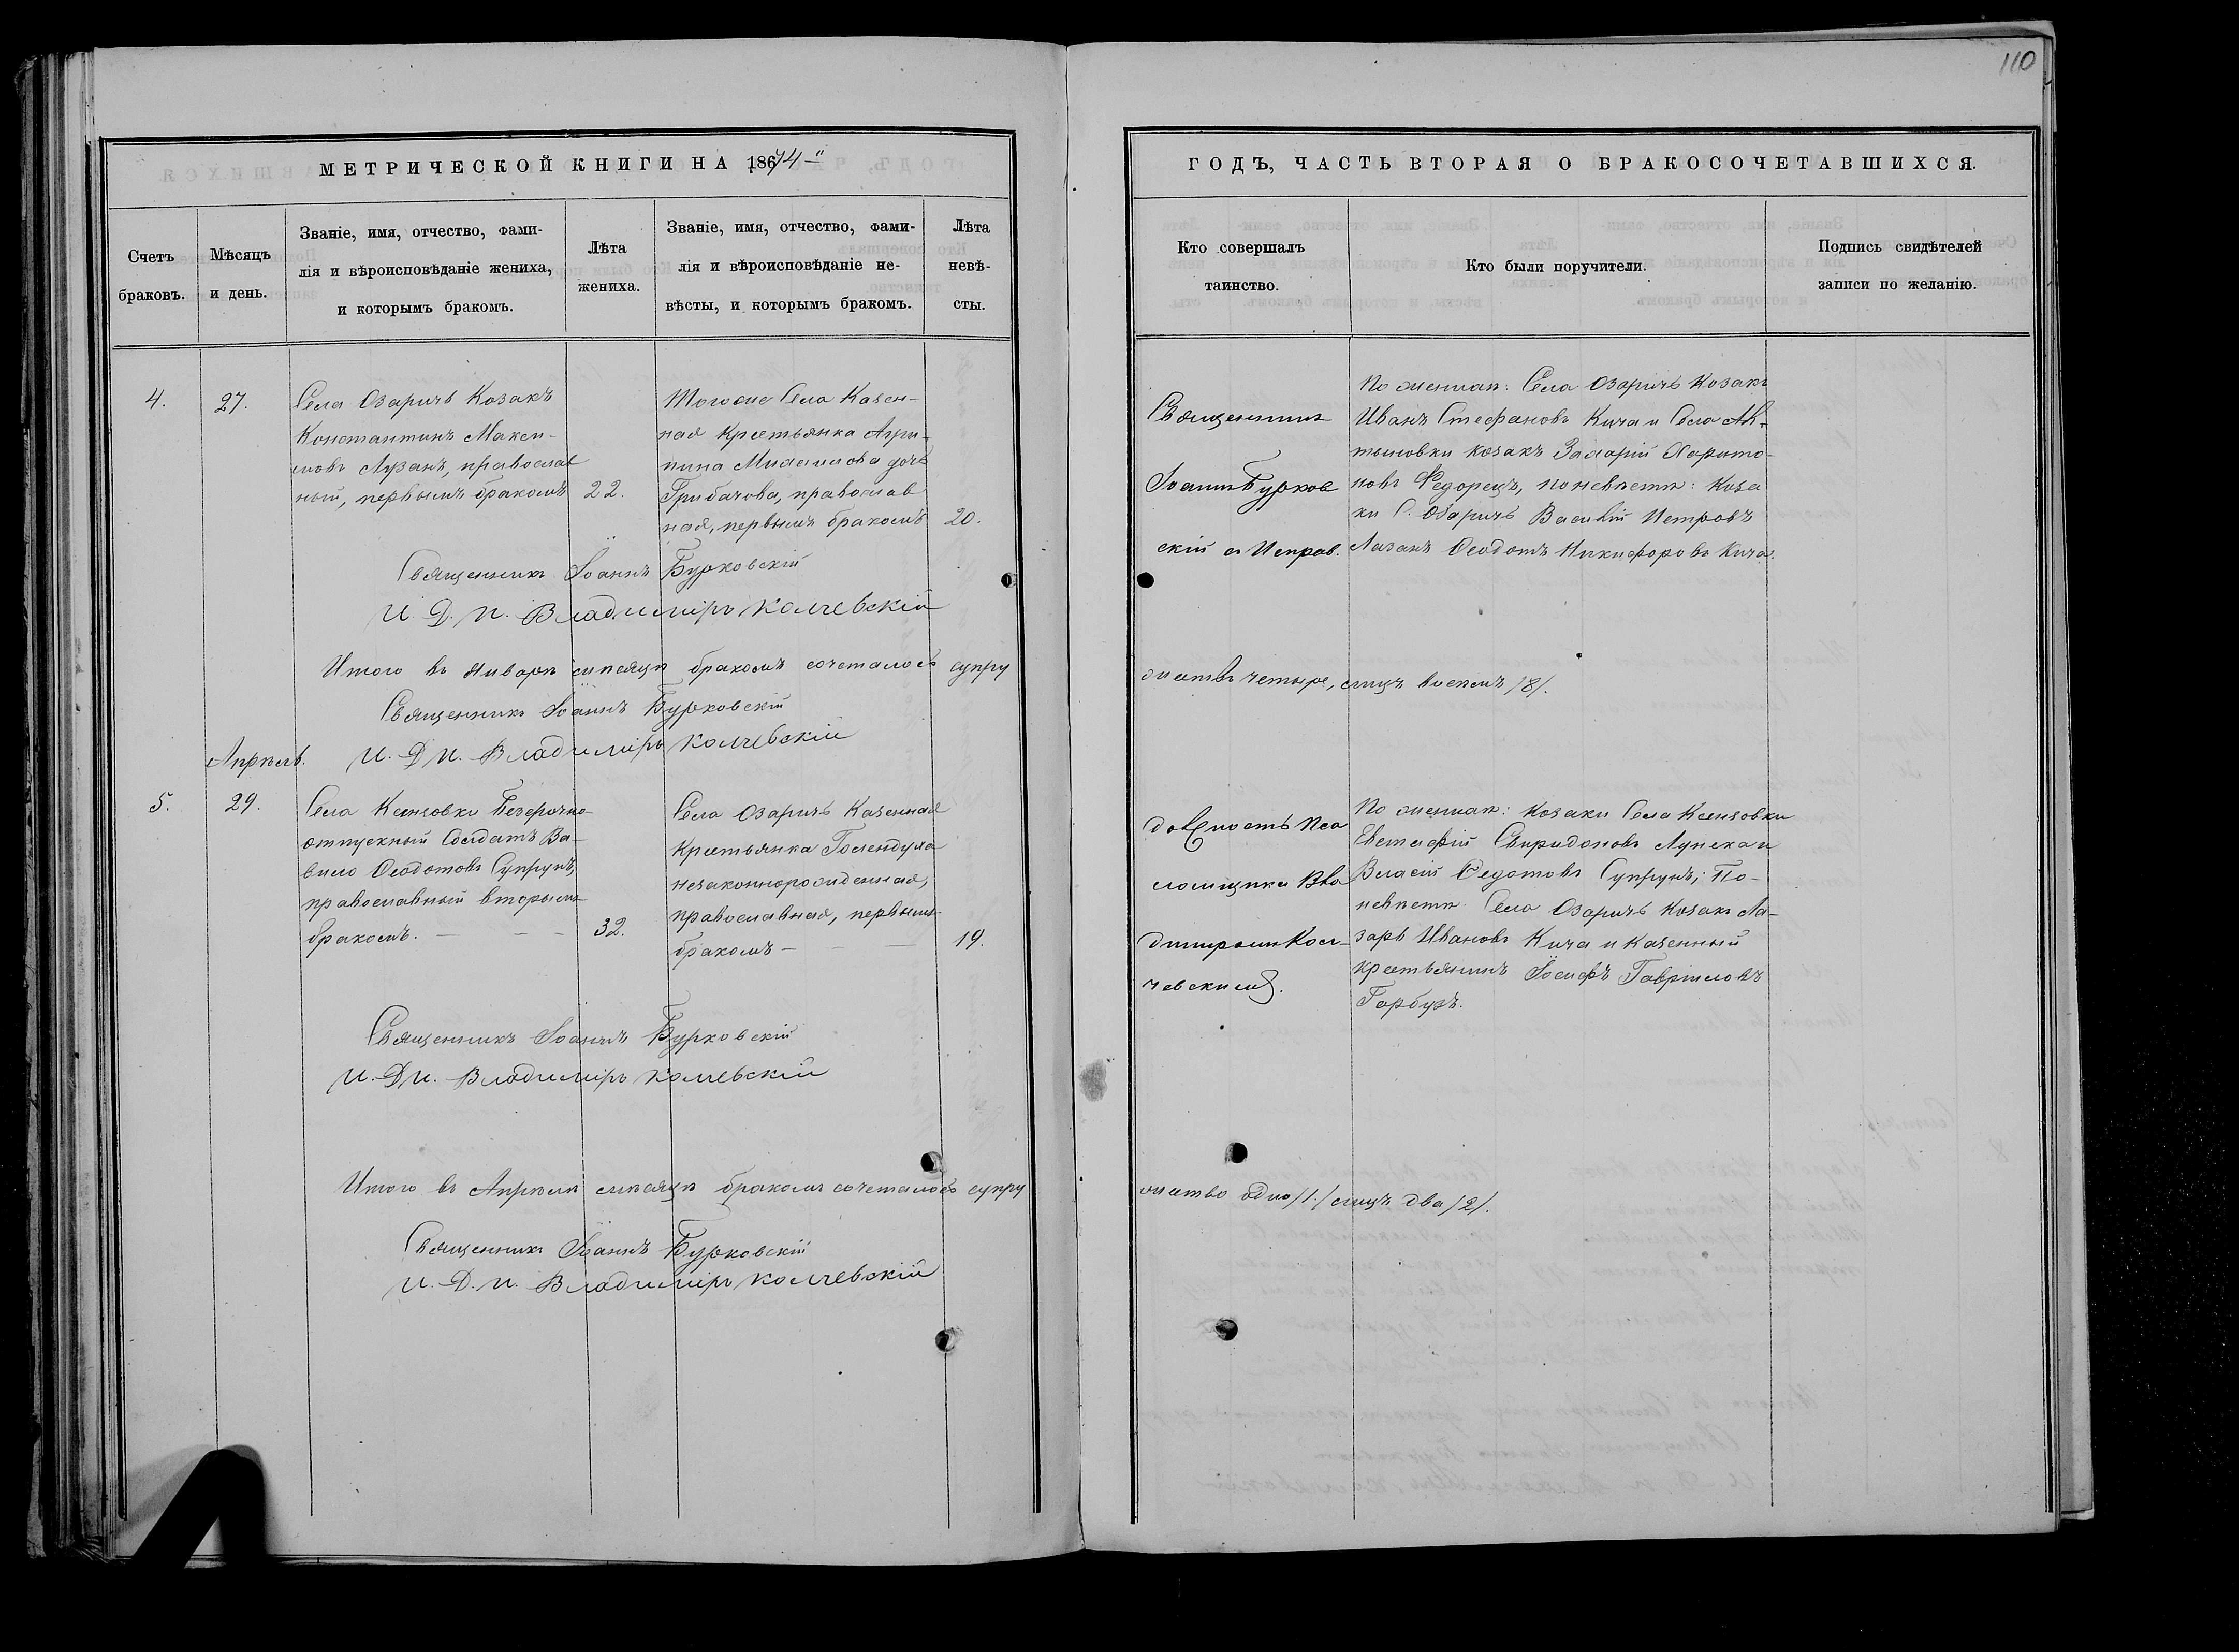 110
МЕТРИЧЕСКОЙ КНИГИ НА 1874
ГОДЪ, ЧАСТЬ ВТОРАЯ О БРАКОСОЧЕТАВШИХСЯ.
Счетъ
браковъ.
Мѣсяцъ
и день.
Званіе, имя, отчество, фами-
лія и вѣроисповѣданіе жениха,
и которымъ бракомъ.
Лѣта
жениха.
Званіе, имя, отчество, фами-
лія и вѣроисповѣданіе не-
вѣсты, и которымъ бракомъ.
Лѣта
невѣ-
сты.
Кто совершалъ
таинство.
Кто были поручители.
Подпись свидѣтелей
записи по желанію.
4.
27.
Села Озаричъ Козакъ
Константинъ Макси-
мовъ Лузанъ, православ
ный, первымъ бракомъ
22.
Тогоже Села Казен-
ная Крестьянка Агри-
пина Михаилова дочь
Грибачова, православ
ная, первымъ бракомъ
20.
Священникъ
Іоаннъ Бурков
скій съ Исправ.
По женихѣ: Села Озаричъ Козакъ
Иванъ Стефановъ Кича и Села
козакъ Захарій Харито-
новъ Федорецъ, по невѣстѣ: Коза
ки С. Озаричъ Василій Петровъ
Лазанъ Ѳеодотъ Никифоровъ Кича.
Священникъ Іоаннъ Бурковскій
И. Д. П. Владиміръ Колчевскій
Итого въ Январѣ мѣсяцѣ бракомъ сочеталось супру
жествъ четыре, лицъ восемь /8/.
Священникъ Іоаннъ Бурковскій
И. Д. П. Владиміръ Колчевскій
Апрѣль.
5.
29.
Села Ксензовки Безсрочно-
отпускный Солдатъ Ва-
вило Ѳеодотовъ Супрунъ,
православный вторымъ
бракомъ.
32.
Села Озаричъ Казенная
Крестьянка
незаконнорожденная,
православная, первымъ
бракомъ
19.
должность Пса
ломщика Вла
диміромъ Кол-
чевскимъ.
По женихѣ: Козаки Села Ксензовки
Евстафій Свиридоновъ Лупека и
Власій Федотовъ Супрунъ; По-
невѣстѣ. Села Озаричъ Козакъ Ла-
зарь Ивановъ Кича и Казенный
крестьянинъ Іосифъ Гавріиловъ
Гарбузъ.
Священникъ Іоаннъ Бурковскій
И. Д. П. Владиміръ Колчевскій
Итого въ Апрѣлѣ мѣсяцѣ бракомъ сочеталось супру
жество одно /1./ лицъ два /2/.
Священникъ Іоаннъ Бурковскій
И. Д. П. Владиміръ Колчевскій